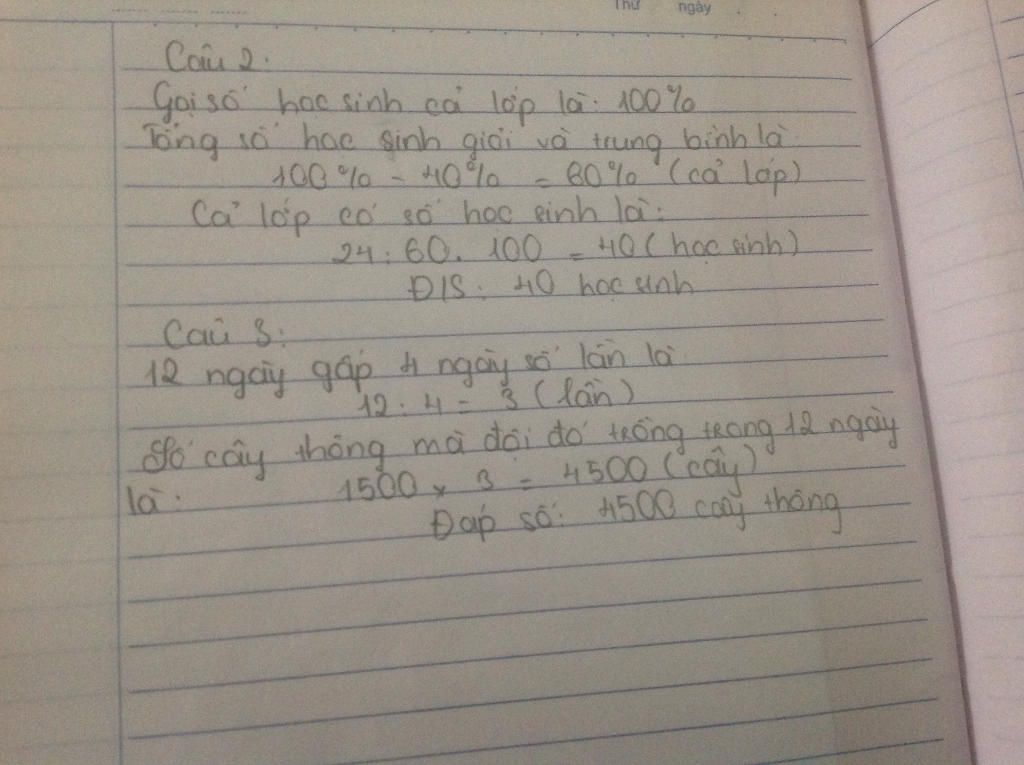 Thứ ngày
Câu 2.
Gọi số học sinh cả lớp là: 100%
Tổng số học sinh giỏi và trung bình là:
100% - 40% = 60% (cả lớp)
Cả lớp có số học sinh là:
24 : 60 . 100 = 40 (học sinh)
Đ/S: 40 học sinh
Câu 3:
12 ngày gấp 4 ngày số lần là
12 : 4 = 3 (lần)
Số cây thông mà đội đó trồng trong 12 ngày
là: 1500 x 3 = 4500 (cây)
Đáp số: 4500 cây thông